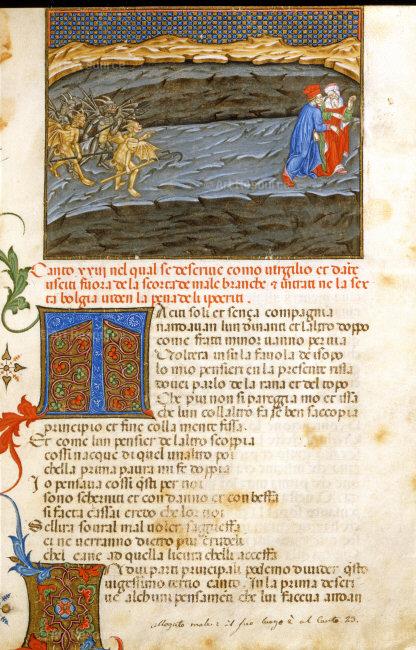 Canto xxiij nel qual se descrive como virgilio et dāte
usciti fuora de la scorta de male branche & intrati ne la sex
ta bolgia viden la pena de li ipocriti.
Taciti soli et sença compagnia
nandavan lun dinanti et laltro doppo
come frati minor vanno per via
Volto era in su la favola de isopo
lo mio pensier en la presente rissa
dov ei parlo de la rana et del topo
Che piu non si paregia mo et issa
che lun collaltro fa se ben saccopia
principio et fine colla mente fissa.
Et come lun pensier de laltro scoppia
cossi nacque di quel un altro poi
che lla prima paura mi fe doppia
Io pensava cossi q̄sti per noi
sono scherniti et con danno et con beffa
si facta cassai credo che lor noi
Se llira sovral mal voler saggueffa
ei ne verranno dietro piu crudeli
chel cane ad quella lievra chelli acceffa
In dui parti principali podemo divider q̄sto
vigessimo tertio canto. In la prima descri
ve alchuni pensameti che lui faceva andan
allogato male: il suo luogo è al Canto 23.